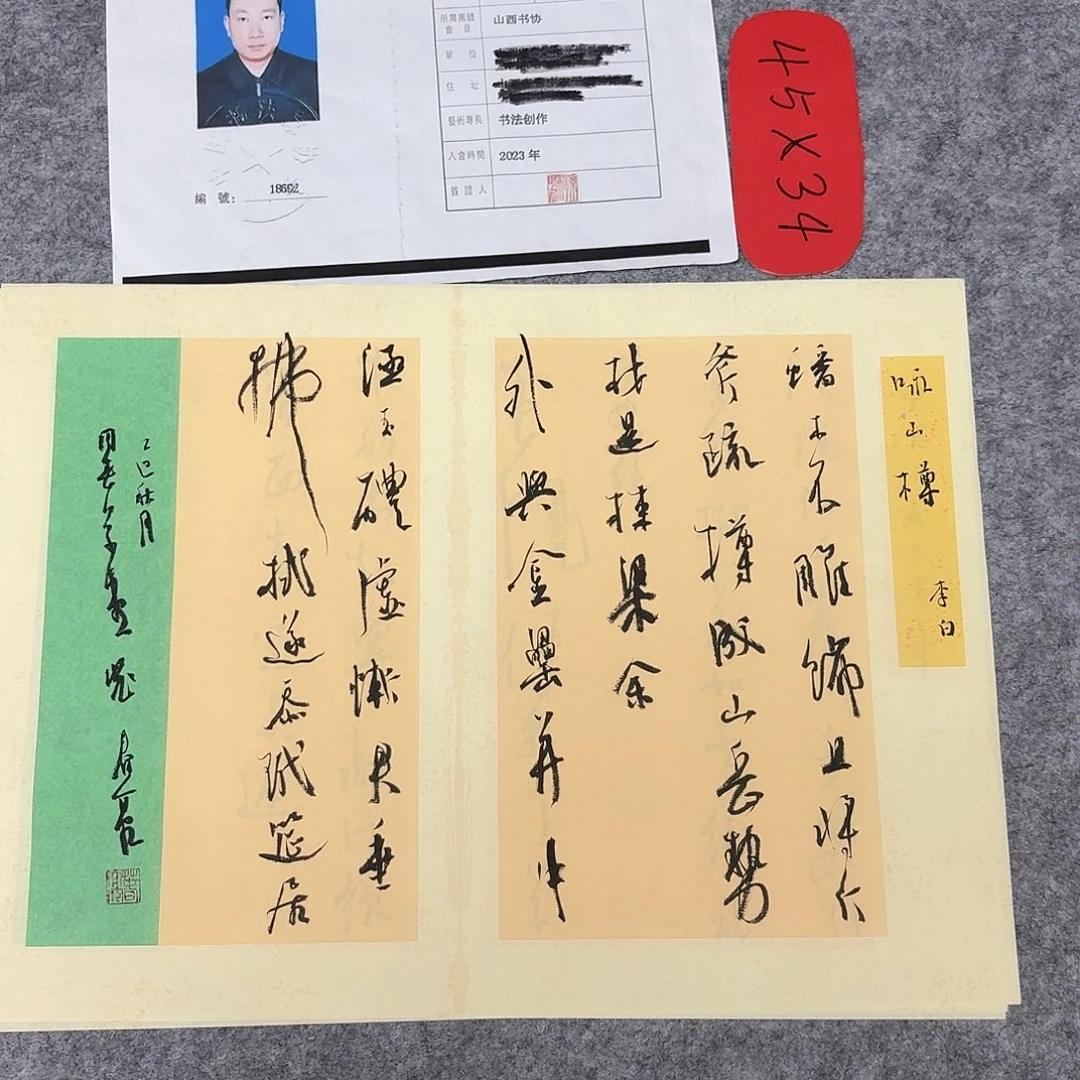 所屬團體會員 山西书协
單位
住址
藝術專長 书法创作
入會時間 2023年
簽證人
編號: 18692
45X34
咏山樽
李白
蟠木不雕饰且将斤
斧疏樽成山岳勢
材是棟梁余
外與金罍并中
涵玉醴虚慚君垂
拂拭遂忝玳筵居
乙巳秋月